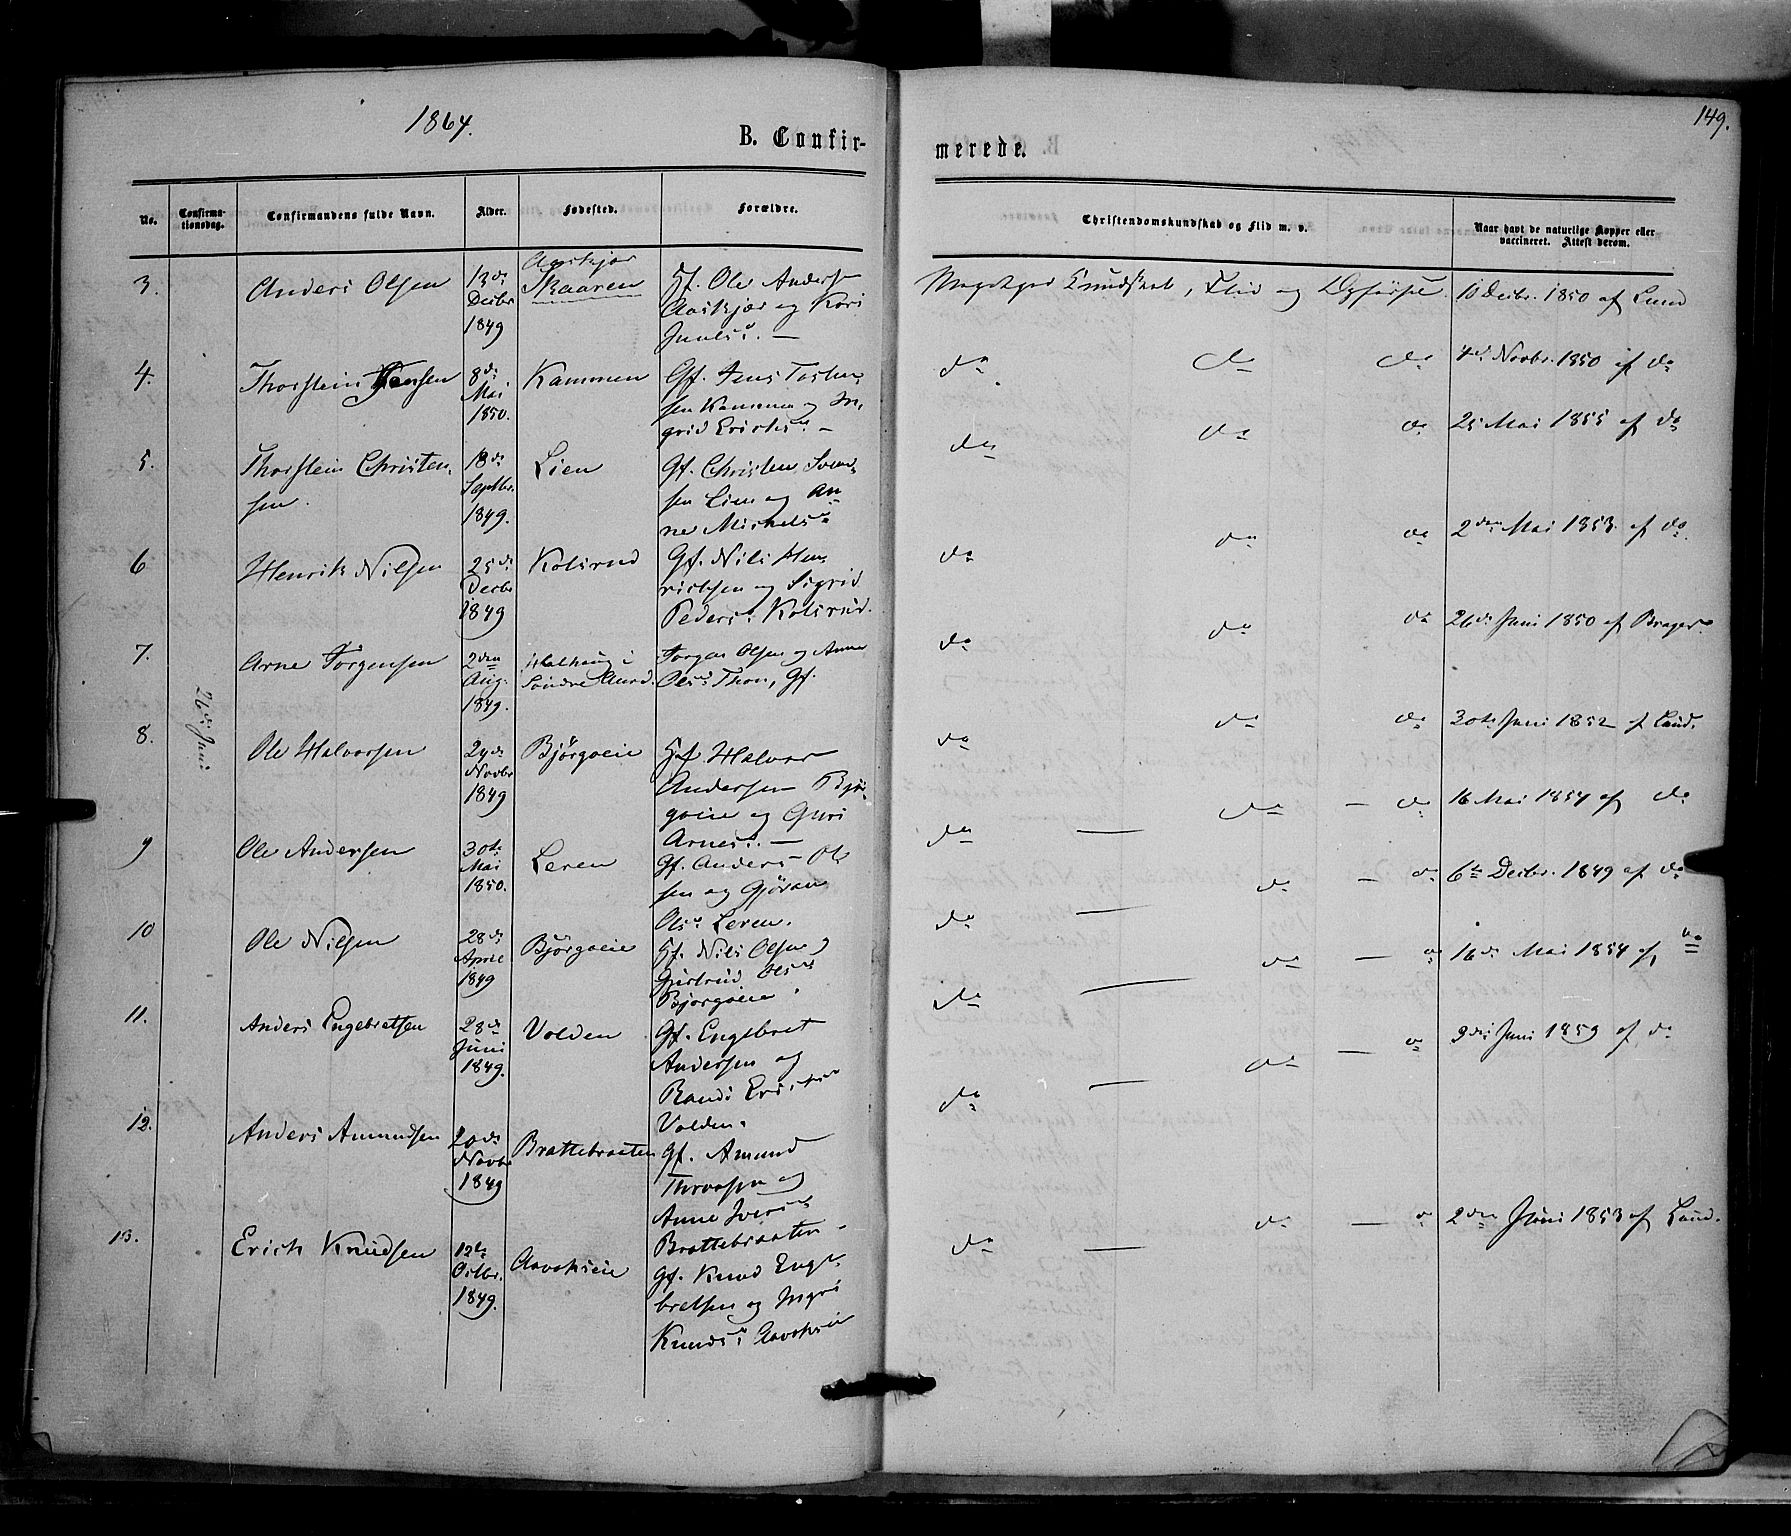 1864.
149.
B. Confir-
merede.
No.
Confirma-
tionsdag.
Confirmandens fulde Navn.
Alder.
Fødested.
Forældre.
Christendomskundskab og Flid m. v.
Naar havt de naturlige Kopper eller
vaccineret. Attest derom.
26de Juni
3. Anders Olsen 13de Aaskjær Gf. Ole Anders Meget god Kundskab, Flid og Opførsel. 10 Decbr. 1850 af Lund
Decbr Skaaren Aaskjær og Kari
1849
4. Thorstein Jensen 8de Kammen Gf. Jens Torsten do do do 4de Novbr. 1850 af do
Mai sen Kammen og In
1850. grid Erichs. –
5. Thorstein Christen 18de Lien Gf. Christen Svend do do do 25 Mai 1855 af do
sen. Septbr. sen Lien og An
1849. ne Mickels
6 Henrik Nilsen 25de Kolsrud Gf. Nils Hen do do do 2den Mai 1853 af do
Decbr richsen og Sigrid
1849 Peders. Kolsrud.
7. Arne Torgersen 2den Halhaug i Torger Olsen og Anne do do do 26de Juni 1850 af Brager
Aug. Søndre Aurd. Olsd Thon, Gf.
1849.
8. Ole Halvorsen 24de Bjørgoeie Gf. Halvor do do do 30te Juni 1852 af Lund.
Novbr Andersen Bjør
1849 goeie og Guri
Arnes. –
9 Ole Andersen 30te Leren Gf. Anders Ol do — do — do 16 Mai 1854 af do
Mai sen og Gjøran
1850. Ols. Leren.
10 Ole Nilsen 28de Bjørgoeie Gf. Nils Olsen og do — do — do 6te Decbr. 1849 af do
April Gjertrud Ols
1849 Bjørgoeie.
11. Anders Engebretsen 28de Volden Gf. Engebret do — do — do 16de Mai 1854 af do
Juni Andersen og
1849. Randi Erichs
Volden.
12. Anders Amundsen 20de Brattebraaten Gf. Amund do — do — do 9de Juni 1859 af do
Novbr og
1849 Anne Ivers
Brattebraaten –
13. Erich Knudsen 12te Aavokseie Gf. Knud Enge do — do — do 2den Juni 1853 af Lund.
Octbr. bretsen og Ingri
1849. Knuds Aavoksei